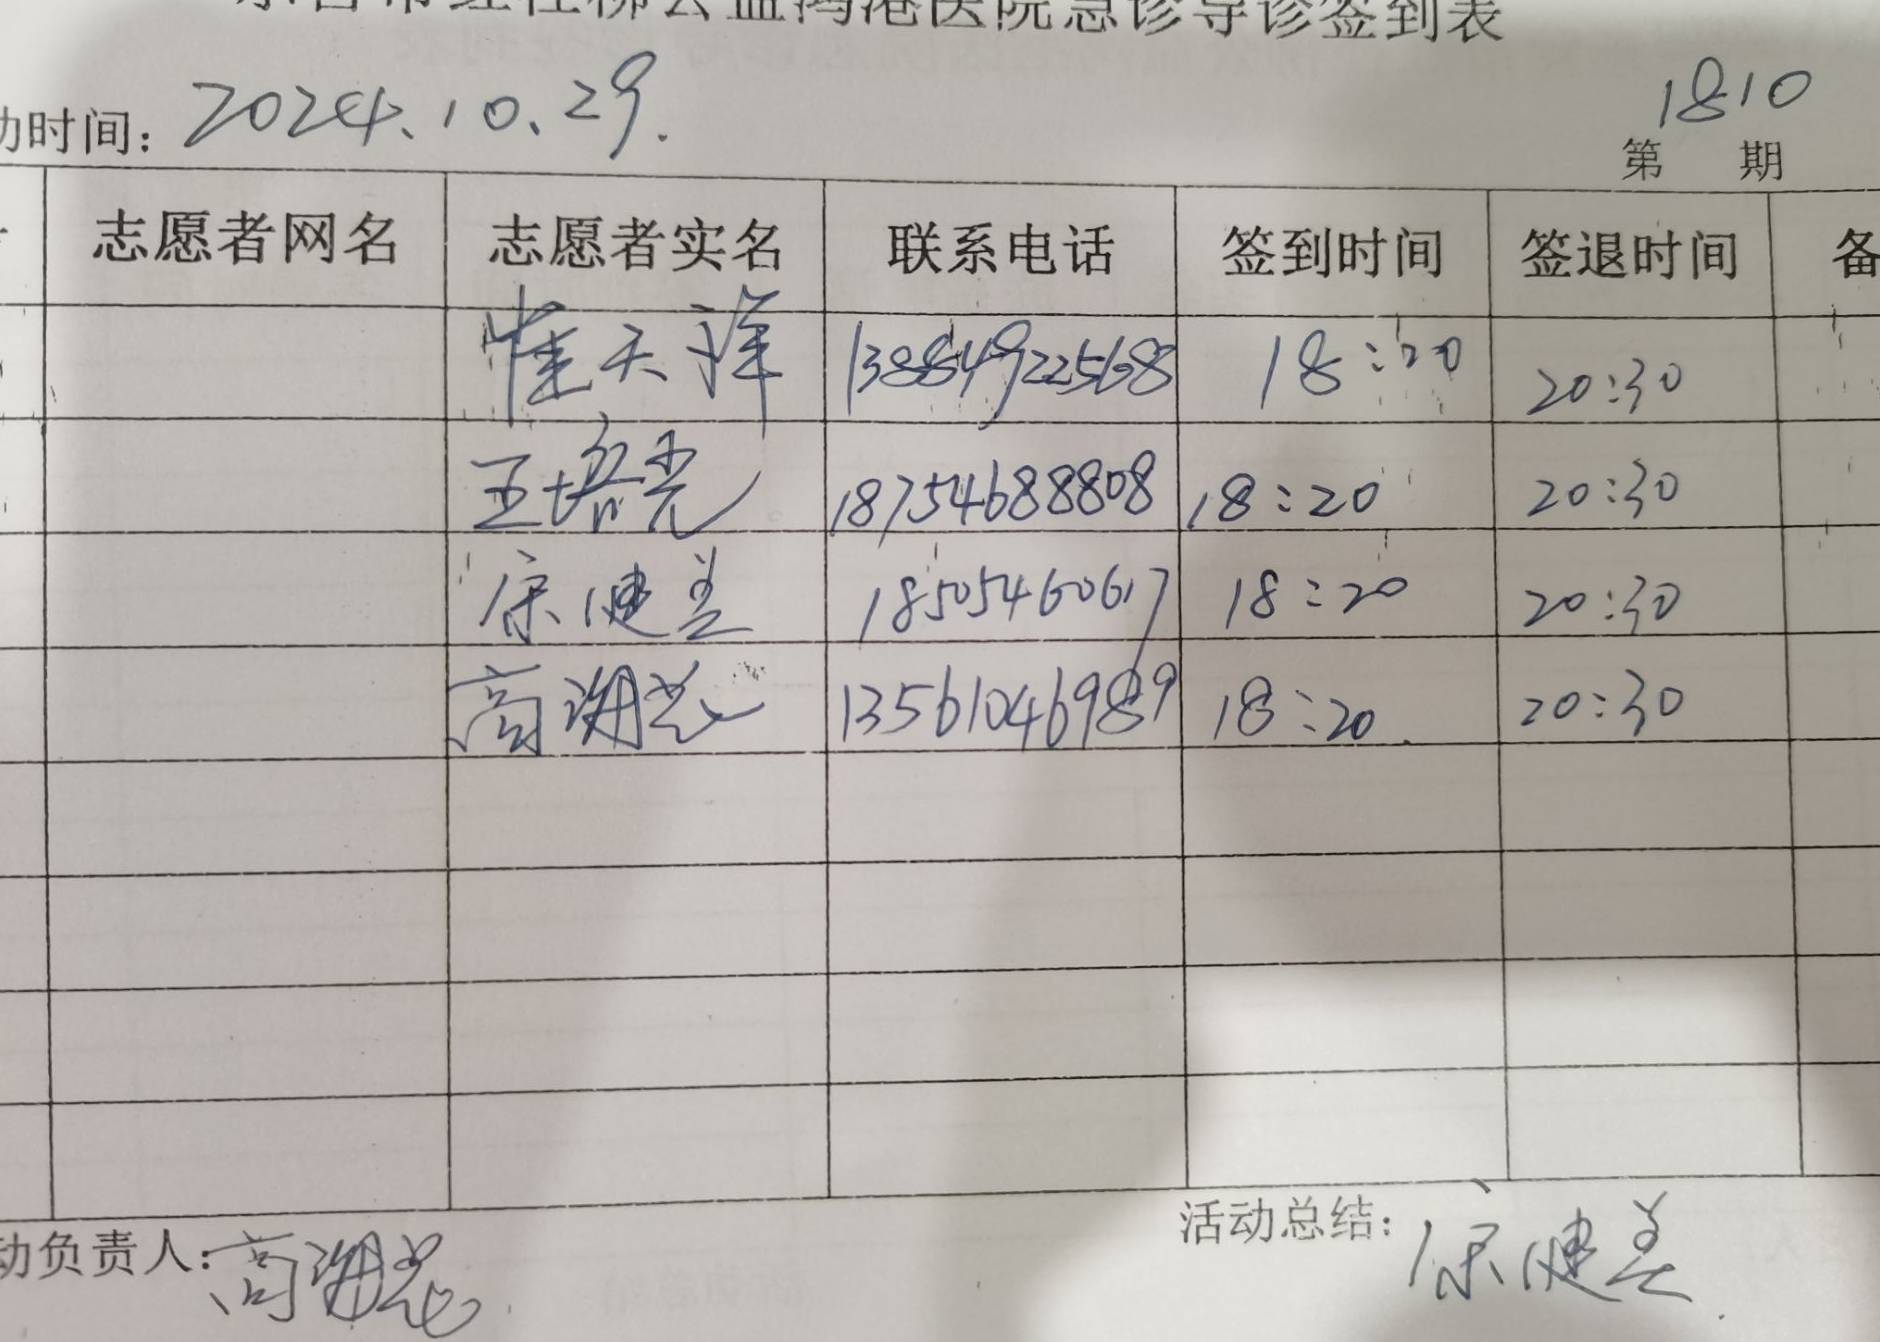 东营市红柽柳公益鸿港医院急诊导诊签到表
动时间: 2024.10.29.
1810
第 期
志愿者网名 志愿者实名 联系电话 签到时间 签退时间 备
崔天祥 13884922568 18:20 20:30
王培尧 18754688808 18:20 20:30
宋健美 18505460617 18:20 20:30
高湖花 13561046989 18:20 20:30
动负责人: 高湖花
活动总结: 宋健美